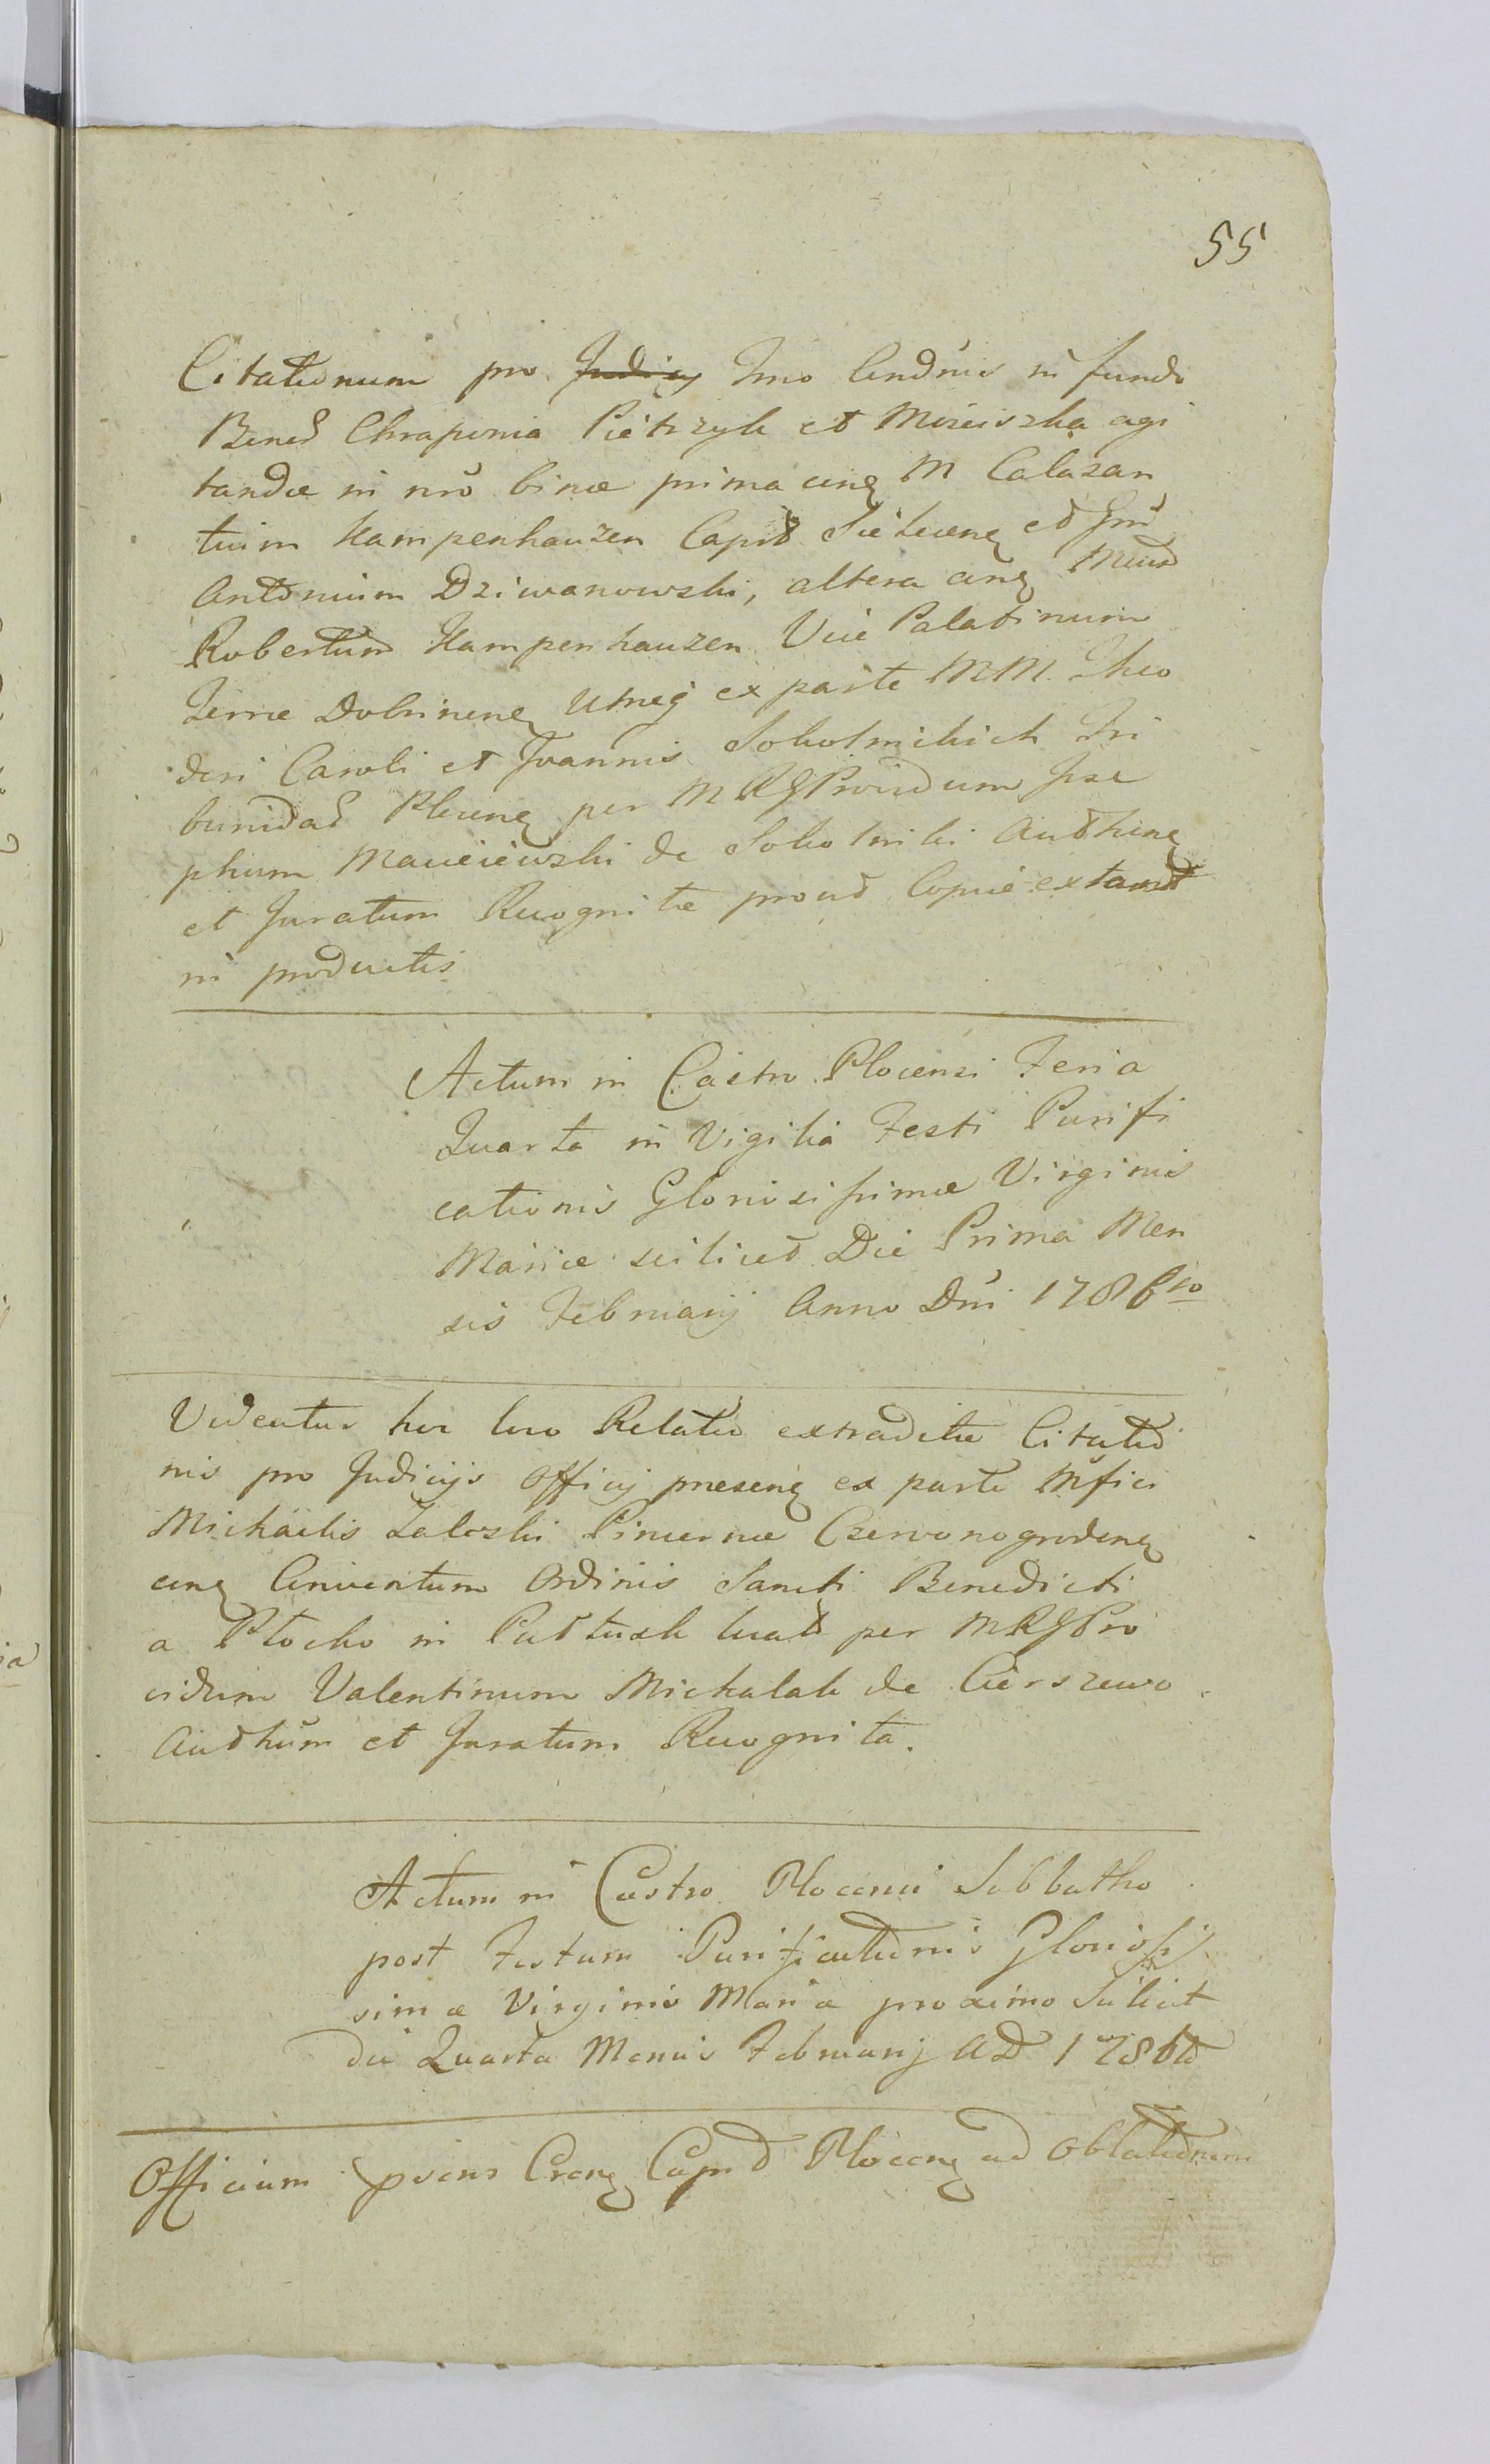 55
Citationum pro Judicy Tmo Condnis in fundo
Bened Chraponia Pietrzyk et Mirciszka agi
tandæ in nro binæ prima cirq M Calasan
tium Kampenhauzen Capit Sielucenq et Gnd
Antonium Dziwanowski, altera cirq
Robertum Kampenhauzen Vice Palatinum
Terræ Dobrinenq Utraq ex parte MM. Theo
dori Caroli et Joannis Sokolnickich Tri
bunidad Plocenq per MRGProvidum Jose
phum Macieiewski de Sokolniki Authenq
et Juratum Recognitæ prout Copiæ extant
in productis
Actum in Castro Plocensi Feria
Quarta in Vigilia Festi Purifi
cationis Gloriosissimæ Virginis
Mariæ scilicet Die Prima Men
sis Februarij Anno Dni 1786to
Videatur hoc loco Relatio extraditæ Citatio
nis pro Judicijs Officij presenq ex parte Mfici
Michaelis Zaleski Pincernæ Czerwonogrodenq
cirq Conventum Ordinis Sancti Benedicti
a Płocko in Pułtusk locat per MRGPro
vidum Valentinum Michalak de Cierszewo
Authūm et Juratum Recognita.
Actum in Castro Plocensi Sabbatho
post Festum Purificationis Gloriosis
simæ Virginis Mariæ proximo Scilicet
die Quarta Mensis Februarij AD 1786to
Officium psens Crenq Capit Plocenq ad Oblationem